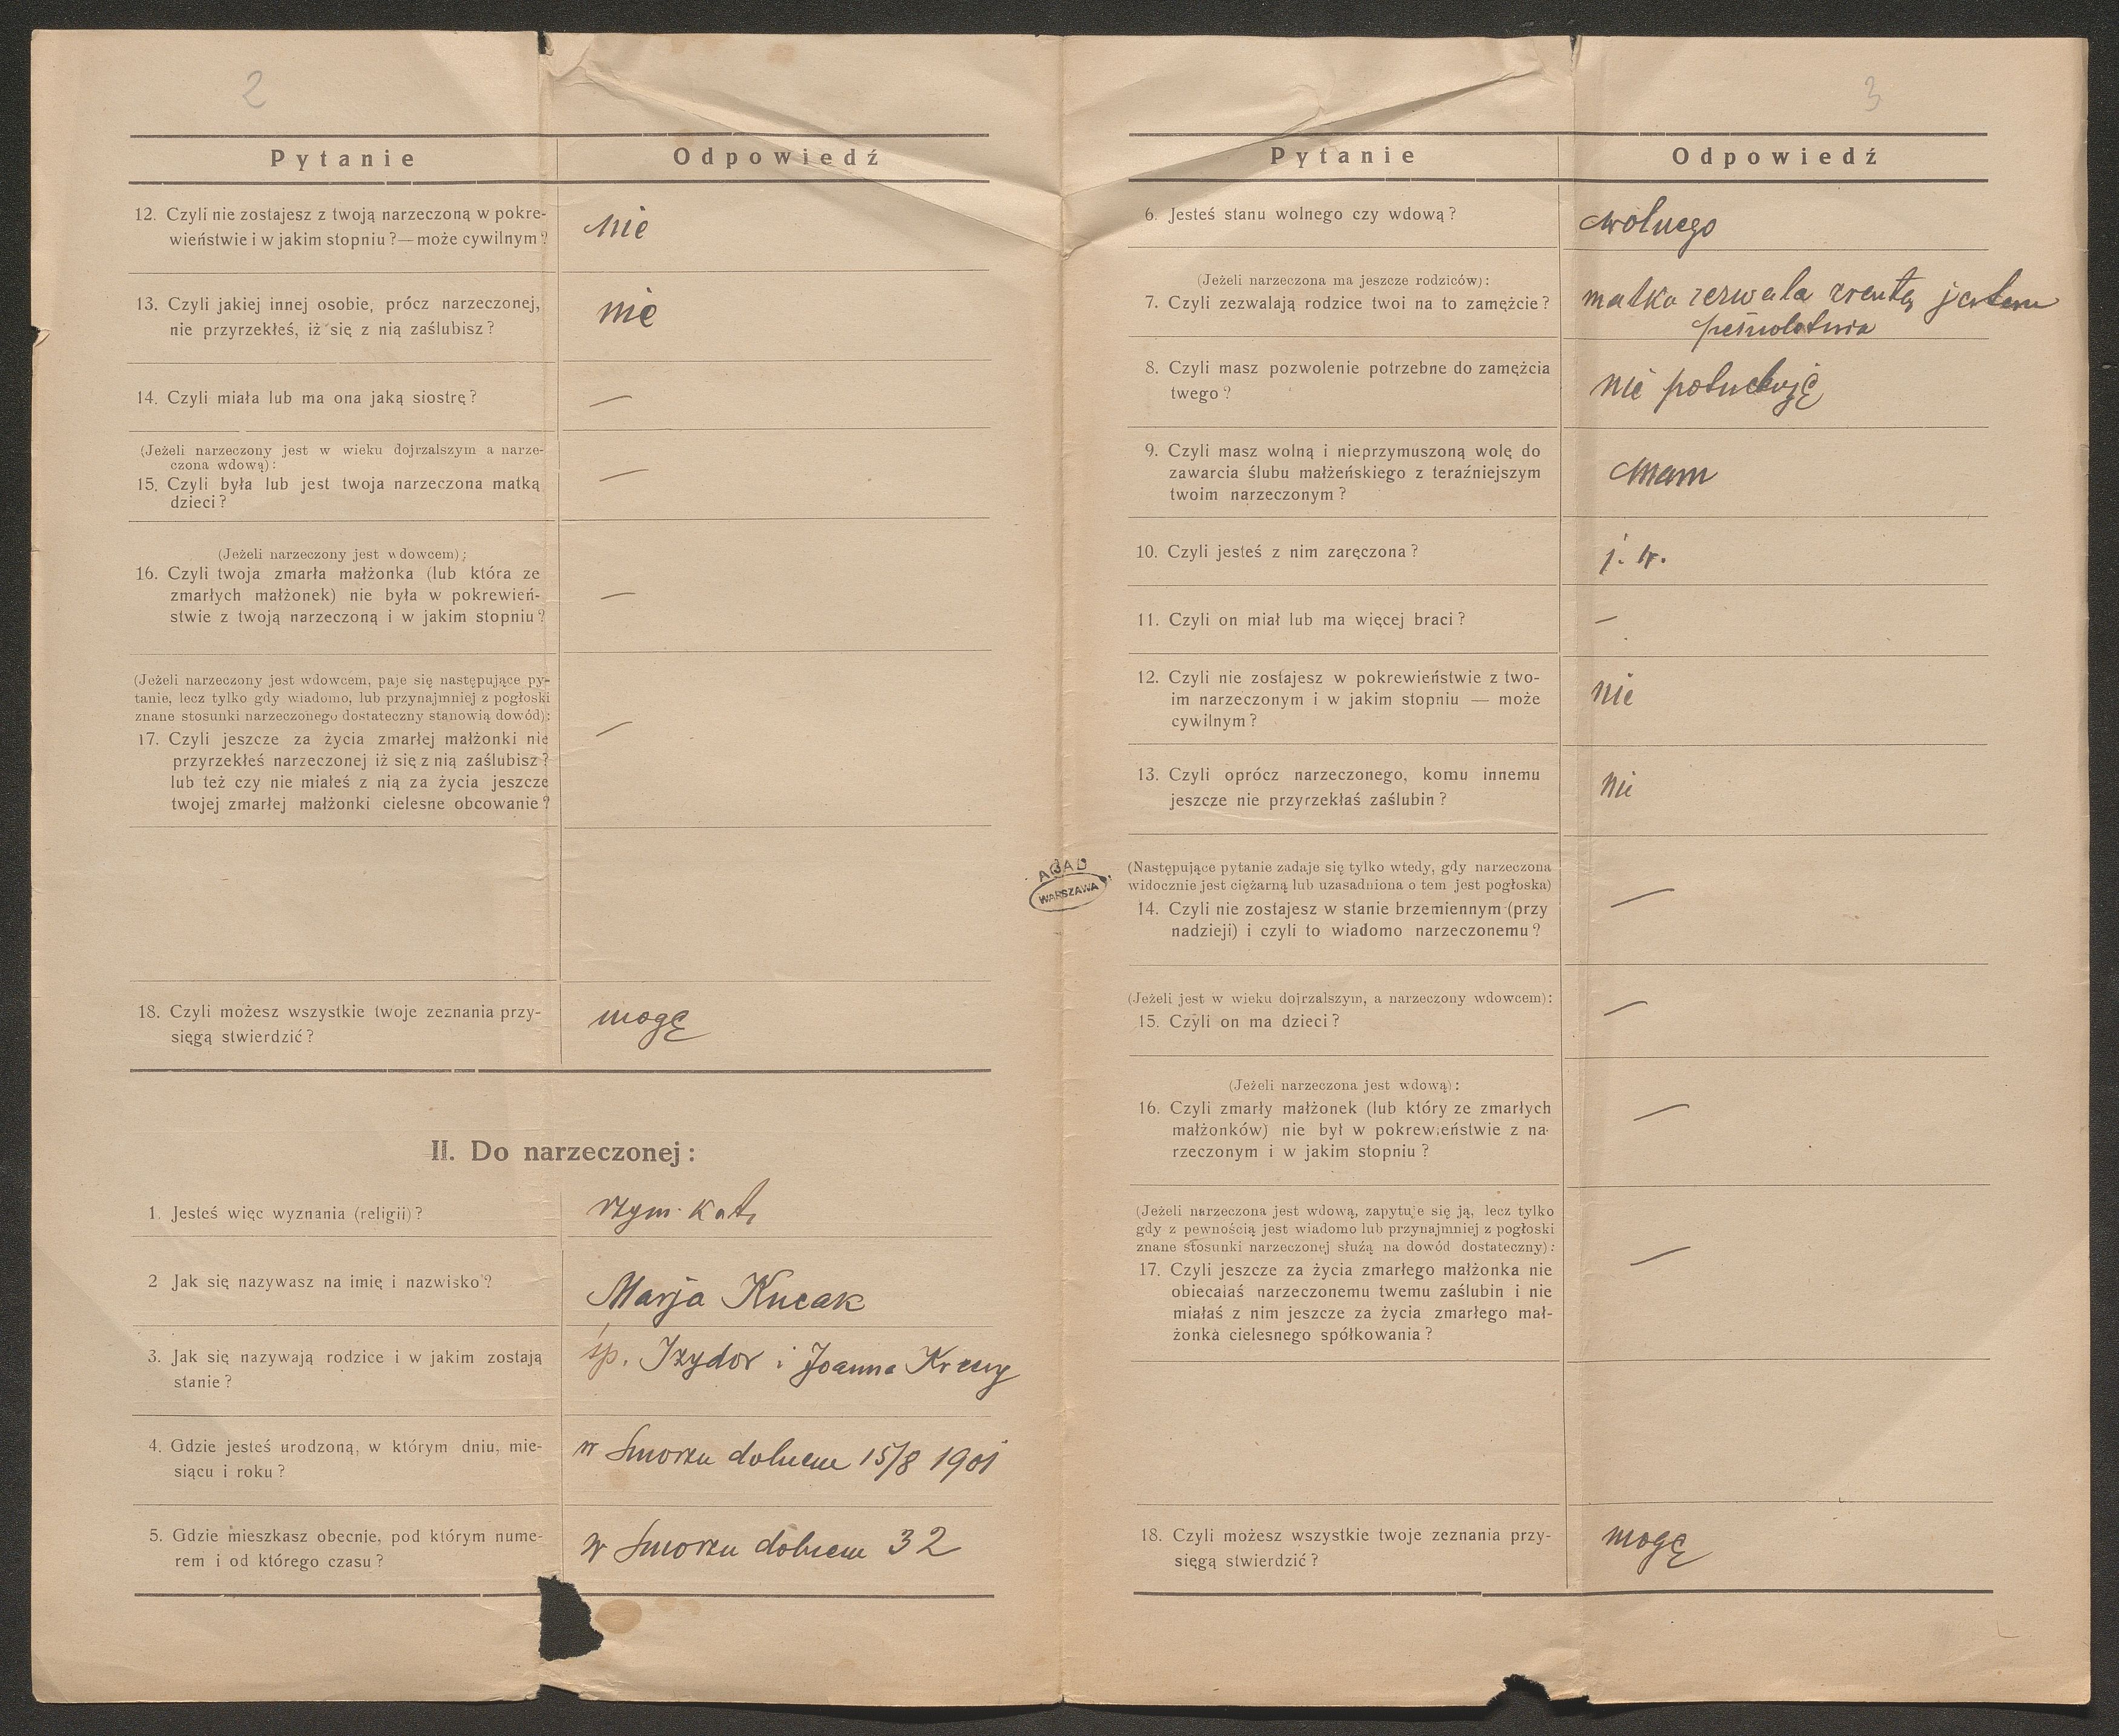 2
Pytanie
Odpowiedź
12. Czyli nie zostajesz z twoją narzeczoną w pokre-
wieństwie i w jakim stopniu?—może cywilnym?
nie
13. Czyli jakiej innej osobie, prócz narzeczonej,
nie przyrzekłeś, iż się z nią zaślubisz?
nie
14. Czyli miała lub ma ona jaką siostrę?
—
(Jeżeli narzeczony jest w wieku dojrzalszym a narze-
czona wdową):
15. Czyli była lub jest twoja narzeczona matką
dzieci?
—
(Jeżeli narzeczony jest wdowcem);
16. Czyli twoja zmarła małżonka (lub która ze
zmarłych małżonek) nie była w pokrewień-
stwie z twoją narzeczoną i w jakim stopniu?
—
(Jeżeli narzeczony jest wdowcem, paje się następujące py-
tanie, lecz tylko gdy wiadomo, lub przynajmniej z pogłoski
znane stosunki narzeczonego dostateczny stanowią dowód):
17. Czyli jeszcze za życia zmarłej małżonki nie
przyrzekłeś narzeczonej iż się z nią zaślubisz?
lub też czy nie miałeś z nią za życia jeszcze
twojej zmarłej małżonki cielesne obcowanie?
—
18. Czyli możesz wszystkie twoje zeznania przy-
sięgą stwierdzić?
mogę
II. Do narzeczonej:
1. Jesteś więc wyznania (religii)?
rzym. kat.
2 Jak się nazywasz na imię i nazwisko?
Marja Kucak
3. Jak się nazywają rodzice i w jakim zostają
stanie?
śp. Izydor i Joanna
4. Gdzie jesteś urodzoną, w którym dniu, mie-
siącu i roku?
w Smorzu dolnem 15/8 1901
5. Gdzie mieszkasz obecnie, pod którym nume-
rem i od którego czasu?
w Smorzu dolnem 32
AGAD
WARSZAWA
3
Pytanie
Odpowiedź
6. Jesteś stanu wolnego czy wdową?
wolnego
(Jeżeli narzeczona ma jeszcze rodziców):
7. Czyli zezwalają rodzice twoi na to zamężcie?
matka zezwala zresztą jestem
pełnoletnia
8. Czyli masz pozwolenie potrzebne do zamężcia
twego?
nie potrzebuję
9. Czyli masz wolną i nieprzymuszoną wolę do
zawarcia ślubu małżeńskiego z teraźniejszym
twoim narzeczonym?
mam
10. Czyli jesteś z nim zaręczona?
j. w.
11. Czyli on miał lub ma więcej braci?
—
12. Czyli nie zostajesz w pokrewieństwie z two-
im narzeczonym i w jakim stopniu — może
cywilnym?
nie
13. Czyli oprócz narzeczonego, komu innemu
jeszcze nie przyrzekłaś zaślubin?
nie
(Następujące pytanie zadaje się tylko wtedy, gdy narzeczona
widocznie jest ciężarną lub uzasadniona o tem jest pogłoska)
14. Czyli nie zostajesz w stanie brzemiennym (przy
nadzieji) i czyli to wiadomo narzeczonemu?
—
(Jeżeli jest w wieku dojrzalszym, a narzeczony wdowcem):
15. Czyli on ma dzieci?
—
(Jeżeli narzeczona jest wdową):
16. Czyli zmarły małżonek (lub który ze zmarłych
małżonków) nie był w pokrewieństwie z na-
rzeczonym i w jakim stopniu?
—
(Jeżeli narzeczona jest wdową, zapytuje się ją, lecz tylko
gdy z pewnością jest wiadomo lub przynajmniej z pogłoski
znane stosunki narzeczonej służą na dowód dostateczny):
17. Czyli jeszcze za życia zmarłego małżonka nie
obiecałaś narzeczonemu twemu zaślubin i nie
miałaś z nim jeszcze za życia zmarłego mał-
żonka cielesnego spółkowania?
—
18. Czyli możesz wszystkie twoje zeznania przy-
sięgą stwierdzić?
mogę